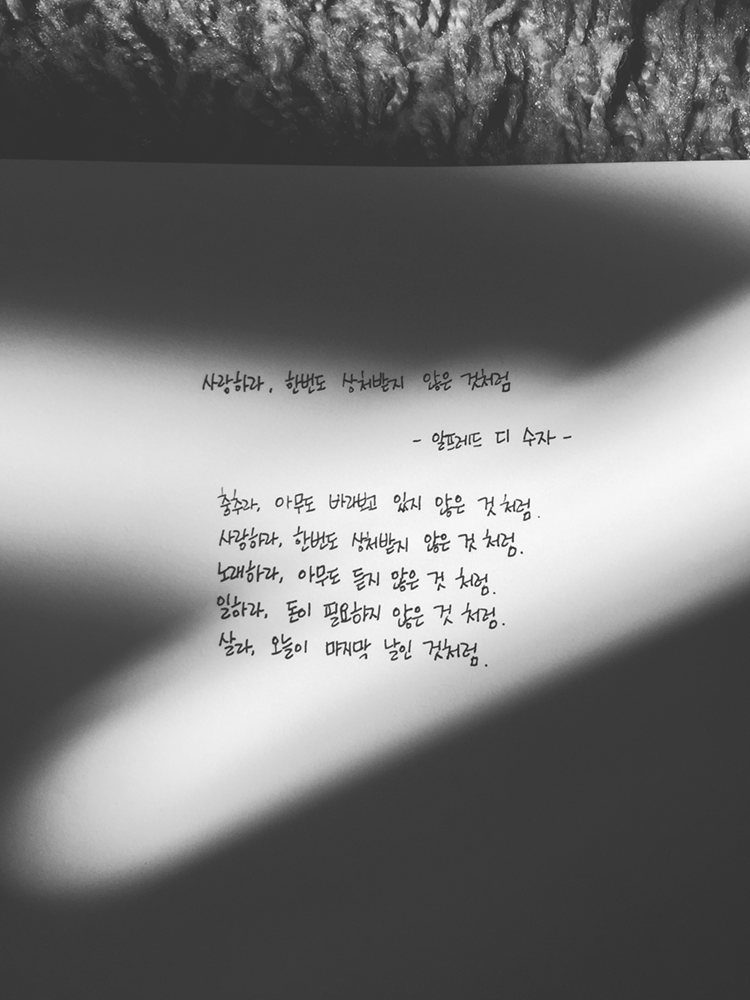 사랑하라, 한번도 상처받지 않은 것처럼
- 알프레드 디 수자 -
춤추라, 아무도 바라보고 있지 않은 것 처럼.
사랑하라, 한번도 상처받지 않은 것 처럼.
노래하라, 아무도 듣지 않은 것 처럼.
일하라, 돈이 필요하지 않은 것 처럼.
살라, 오늘이 마지막 날인 것처럼.